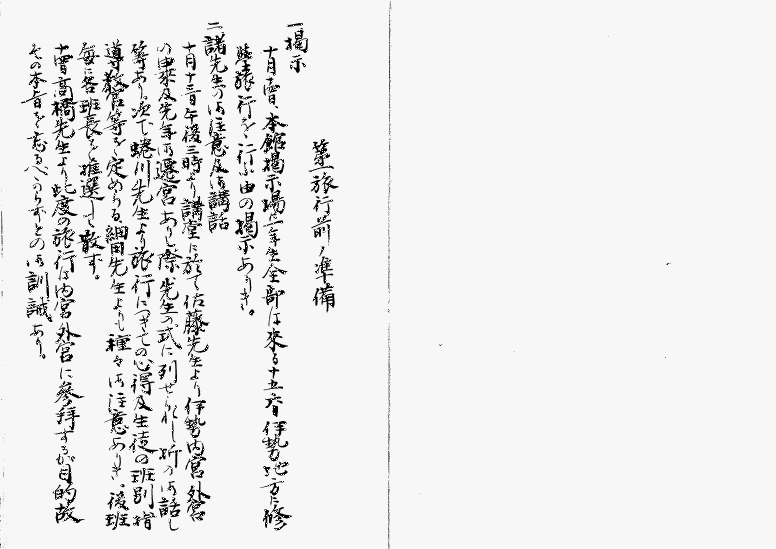 第一旅行前ノ準備
一掲示
十月十一日、本館掲示場に二年生全部は来る十五六日伊勢地方に修
学旅行を行ふ由の掲示ありき。
二諸先生の御注意及御講話
十月十三日午後三時より講堂に於て佐藤先生より伊勢内宮外宮
の由来及先年御遷宮ありし際、先生の式に列せられし折の御話し
等あり次で蜷川先生より旅行につきての心得及生徒の班別指
導教官等を定めらる。細田先生よりも種々御注意ありき。後班
毎に各班長を推選して散ず。
十四日高橋先生より此度の旅行は内宮外宮に参拝するが目的故
その本旨を忘るべからずとの御訓誡あり。